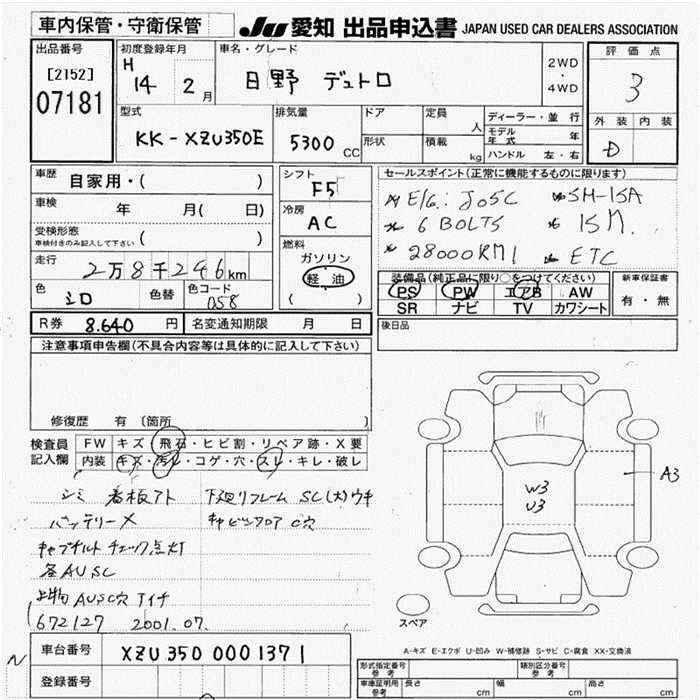 車内保管・守衛保管
JU 愛知 出品申込書 JAPAN USED CAR DEALERS ASSOCIATION
出品番号 初度登録年月 車名・グレード 評価点
[2152] H 14 2月 日野 デュトロ 2WD・4WD 3
07181
型式 排気量 ドア 定員 人 ディーラー・並行 外装 内装
KK-XZU350E 5300cc 形状 積載 kg モデル年式 年 D
ハンドル 左・右
車歴 自家用・( ) シフト F5 セールスポイント(正常に機能するものに限ります)
車検 年 月( 日) 冷房 AC E/G: J05C SH-15A
受検形態 車検付きのみ記入して下さい ( ) 6 BOLTS 15M.
走行 2万8千246km 燃料 ガソリン 軽油 ( ) 28000KM! ETC
色 シロ 色替 色コード 058 装備品(純正品に限り○をつけてください) 新車保証書
PS PW エアB AW 有・無
SR ナビ TV カワシート
R券 8.640円 名変通知期限 月 日 後日品
注意事項申告欄(不具合内容等は具体的に記入して下さい)
修復歴 有 〔箇所 〕
検査員 FW キズ・飛石・ヒビ割・リペア跡・X要
記入欄 内装 キズ・汚レ・コゲ・穴・スレ・キレ・破レ
シミ 看板アト 下廻りフレーム SC(大)ウキ
バッテリーX キャビンフロア C穴
キャブチルト チェック点灯
各AUSC
上物AUSC穴
672127 2001.07.
A3
W3
U3
スペア
A-キズ E-エクボ U-凹み W-補修跡 S-サビ C-腐食 XX-交換済
車台番号 XZU350 0001371
登録番号
形式指定番号 参考 類別区分番号 参考
車庫証明用 参考 長さ cm 幅 cm 高さ cm